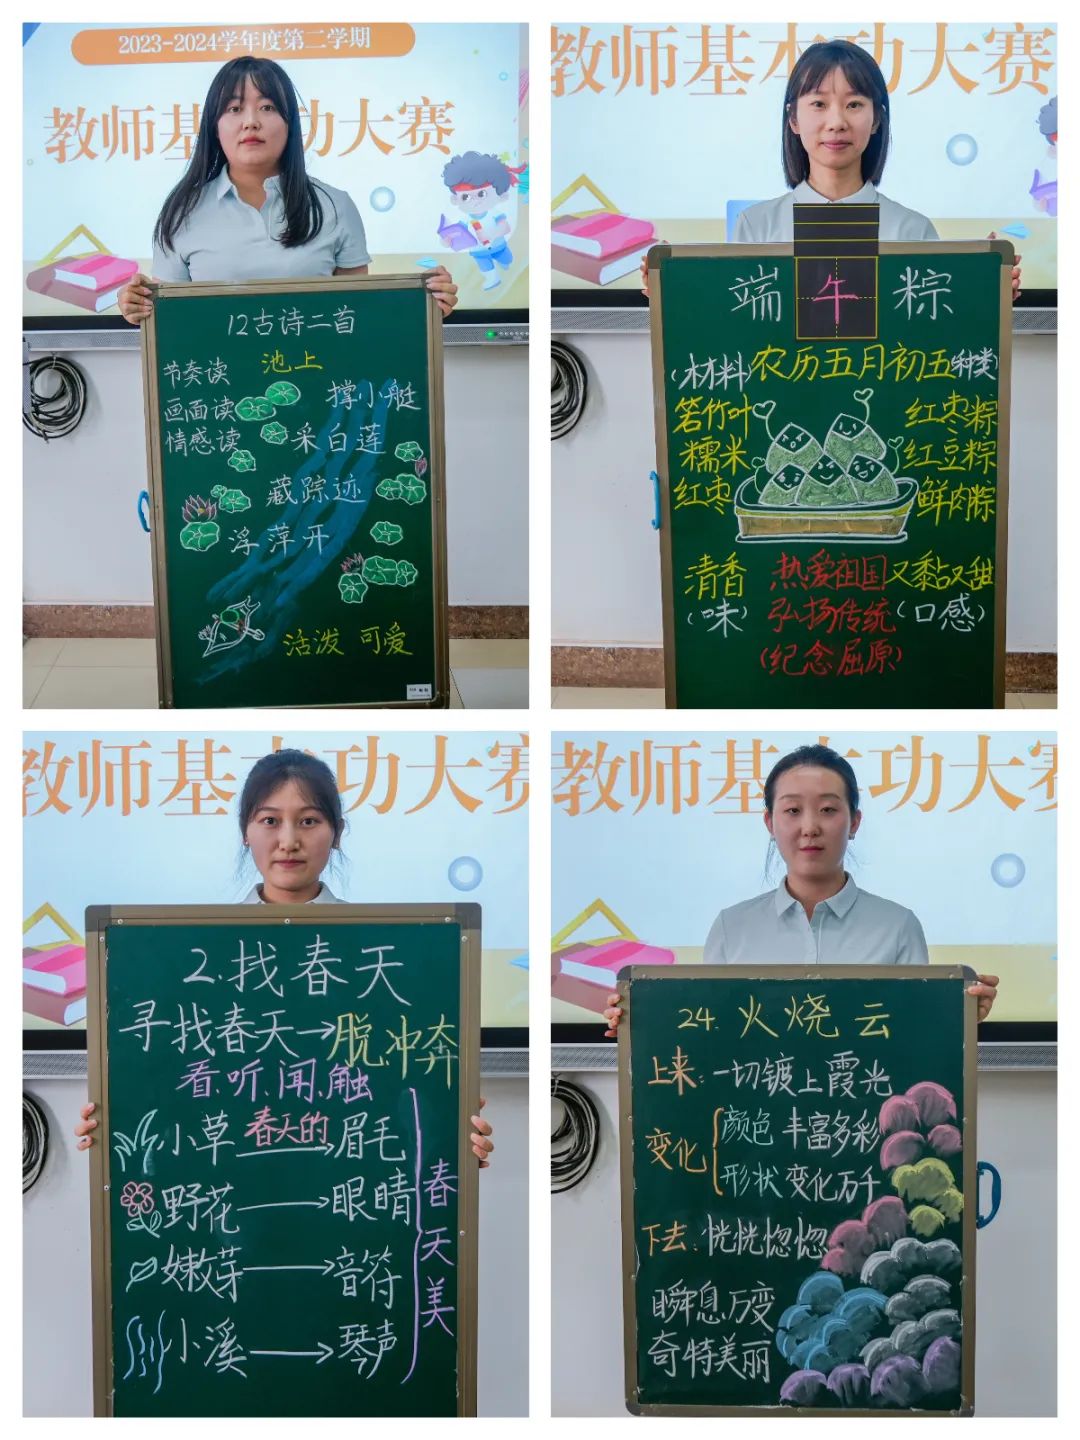 2023-2024学年度第二学期
教师基 功大赛
12古诗二首
池上
节奏读
画面读
情感读
撑小艇
采白莲
藏踪迹
浮萍开
活泼 可爱
教师基本功大赛
端午粽
农历五月初五
(材料)
箬竹叶
糯米
红枣
(种类)
红枣粽
红豆粽
鲜肉粽
清香
(味)
热爱祖国
弘扬传统
(纪念屈原)
又黏又甜
(口感)
教师基本功大赛
2.找春天
寻找春天→脱.冲.奔
看.听.闻.触
小草 春天的 眉毛
野花 → 眼睛
嫩芽 → 音符
小溪 → 琴声
春天美
教师基本功大赛
24.火烧云
上来:一切镀上霞光
变化
颜色 丰富多彩
形状 变化万千
下去:恍恍惚惚
瞬息万变
奇特美丽